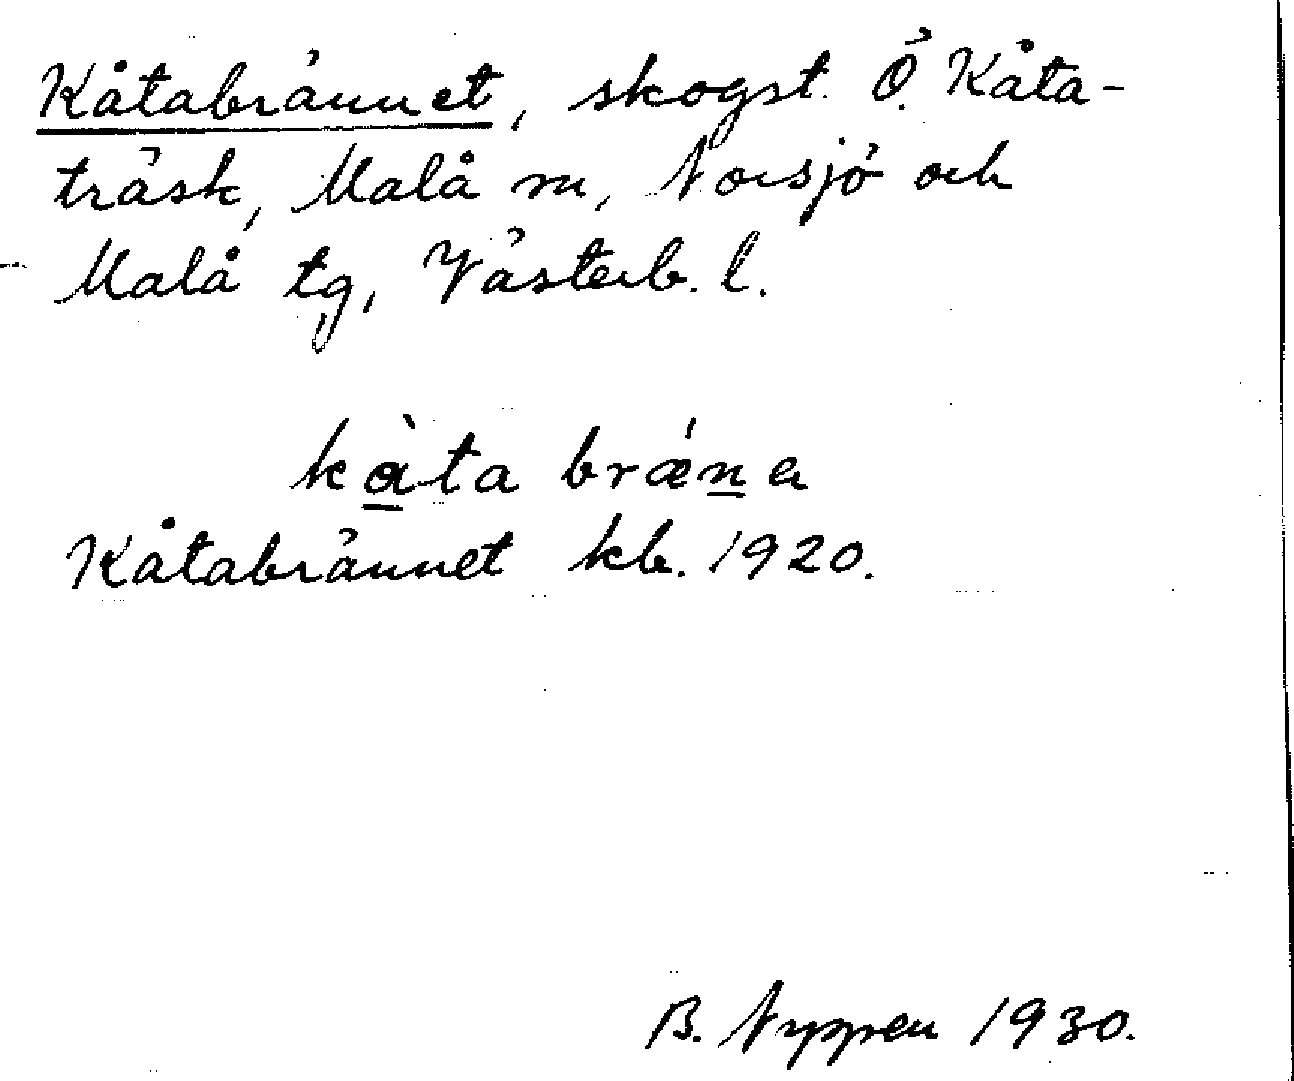 Kåtabrännet, skogst. Ö. Kåta-
träsk, Malå sn, Norsjö och
Malå tg, Västerb. l.
kàta brǽna
Kåtabrännet kb. 1920.
B. 1930.